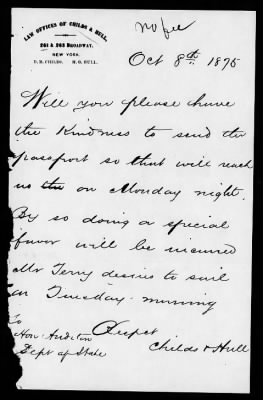 no fee
LAW OFFICES OF CHILDS & HULL,
261 & 263 BROADWAY,
NEW YORK.
D. B. CHILDS. H. O. HULL.
Oct 8th 1875
Will you please have
the Kindness to send the
passport so that will reach
us on Monday night.
By so doing a special
favor will be incured
Mr Terry desires to sail
on Tuesday morning
To
Hon:
Dept of State
Respct
Childs & Hull